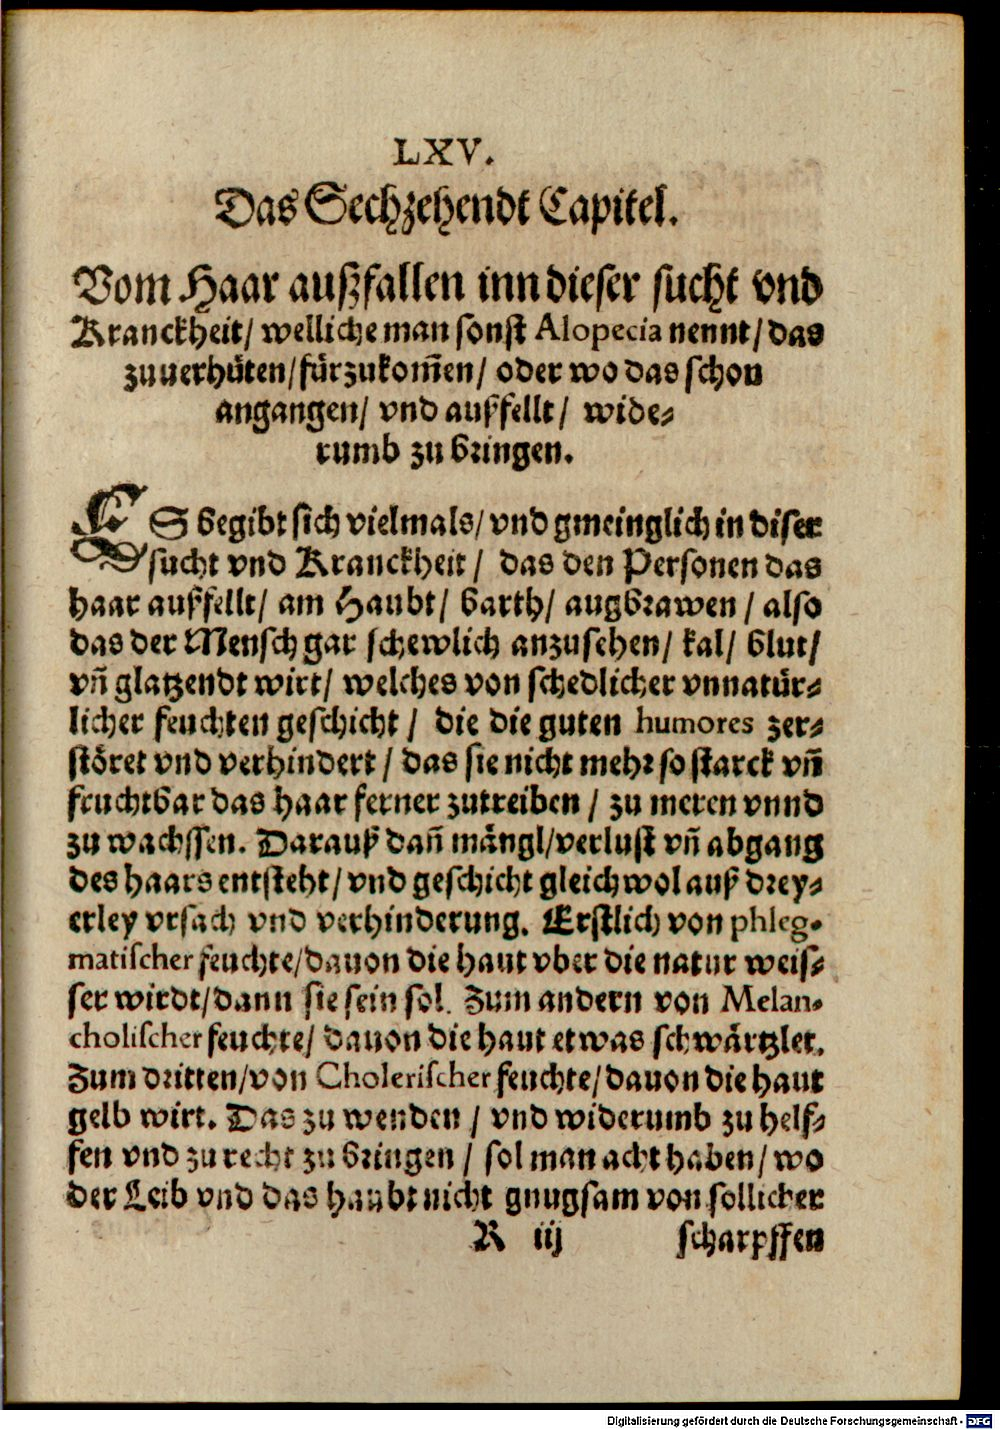 LXV.
Das Sechzehendt Capitel.
Vom Haar außfallen inn dieser sucht vnd
Kranckheit/ welliche man sonst Alopecia nennt/ das
zuuerhüten/ fürzukom̄en/ oder wo das schon
angangen/ vnd außfellt/ wide-
rumb zu bringen.
ES begibt sich vielmals/ vnd gmeinglich in diser
sucht vnd Kranckheit/ das den Personen das
haar außfellt/ am Haubt/ barth/ augbrawen/ also
das der Mensch gar schewlich anzusehen/ kal/ blut/
vn̄ glatzendt wirt/ welches von schedlicher vnnatür-
licher feuchten geschicht/ die die guten humores zer-
störet vnd verhindert/ das sie nicht mehr so starck vn̄
feuchtbar das haar ferner zutreiben/ zu meren vnnd
zu wachssen. Darauß dan̄ mängl/ verlust vn̄ abgang
des haars entsteht/ vnd geschicht gleichwol auß drey-
erley vrsach vnd verhinderung. Erstlich von phleg-
matischer feuchte/ dauon die haut vber die natur weis-
ser wirdt/ dann sie sein sol. Zum andern von Melan-
cholischer feuchte/ dauon die haut etwas schwärtzlet.
Zum dritten/ von Cholerischer feuchte/ dauon die haut
gelb wirt. Das zu wenden/ vnd widerumb zu helf-
fen vnd zu recht zu bringen/ sol man acht haben/ wo
der Leib vnd das haubt nicht gnugsam von sollicher
R iij scharpffen
Digitalisierung gefördert durch die Deutsche Forschungsgemeinschaft - DFG